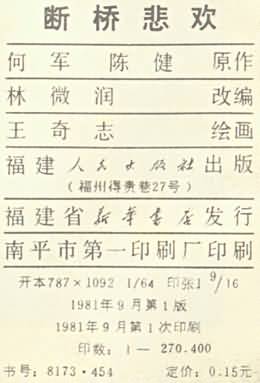 断桥悲欢
何军 陈健 原作
林微润 改编
王奇志 绘画
福建人民出版社出版
(福州得贵巷27号)
福建省新华书店发行
南平市第一印刷厂印刷
开本787×1092 1/64 印张1 9/16
1981年9月第1版
1981年9月第1次印刷
印数: 1— 270.400
书号: 8173·454 定价: 0.15元